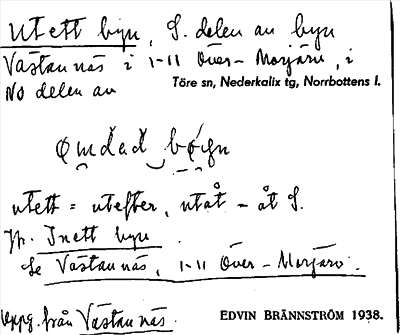 Utett byn, S. delen av byn
Västannäs i 1-11 Över-Morjärv, i
NO delen av Töre sn, Nederkalix tg, Norrbottens l.
utett = utefter, utåt - åt S.
Jfr. Inett byn.
Se Västannäs, 1-11 Över-Morjärv.
Uppg. från Västannäs.
EDVIN BRÄNNSTRÖM 1938.